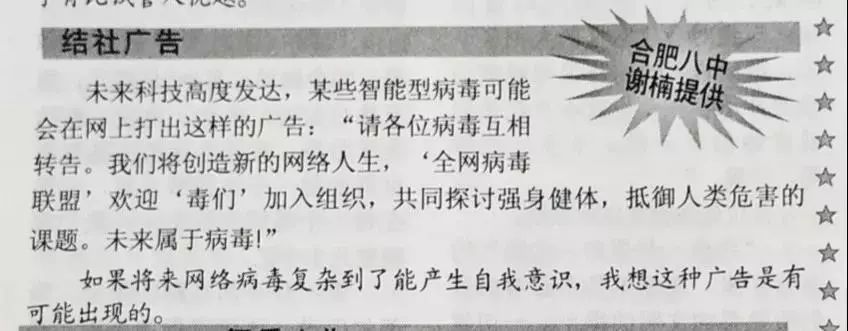 结社广告
合肥八中
谢楠提供
未来科技高度发达，某些智能型病毒可能
会在网上打出这样的广告：“请各位病毒互相
转告。我们将创造新的网络人生，‘全网病毒
联盟’欢迎‘毒们’加入组织，共同探讨强身健体，抵御人类危害的
课题。未来属于病毒!”
如果将来网络病毒复杂到了能产生自我意识，我想这种广告是有
可能出现的。